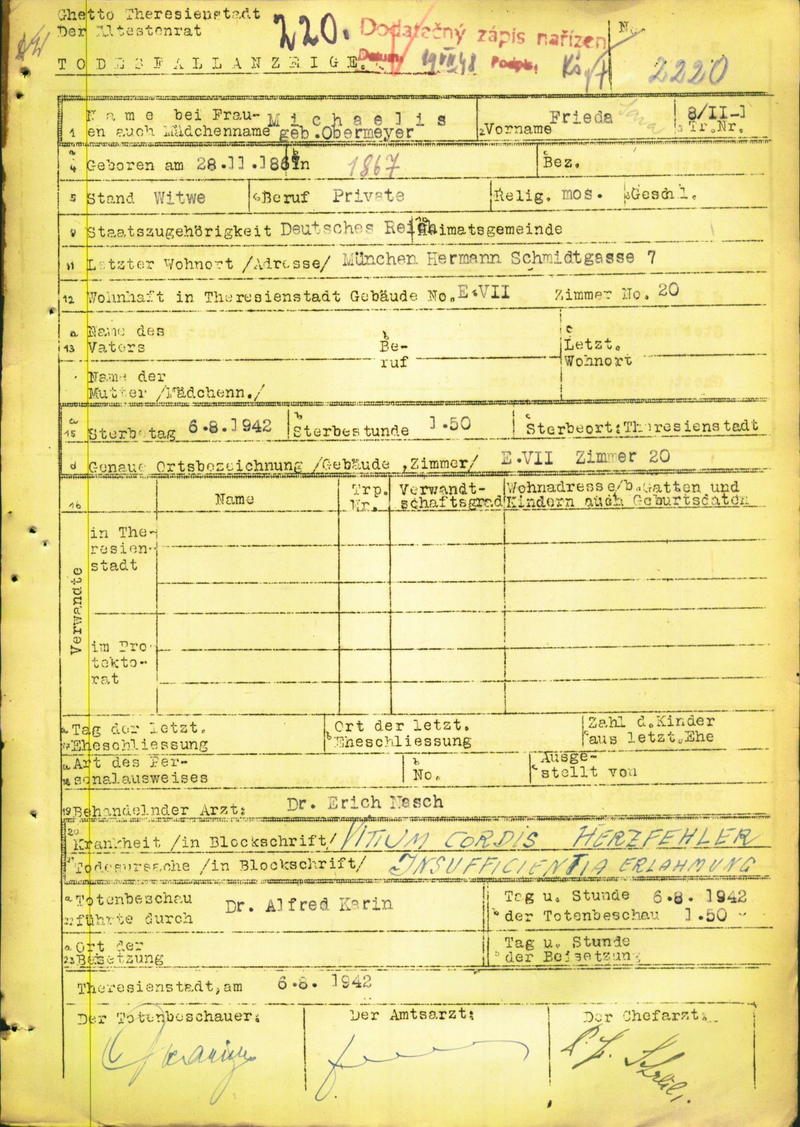 Ghetto Theresienstadt
Der Ältestenrat
220.
Dodatečný zápis nařízen
Datum
Podpis,
No
TODESFALLANZEIGE
2220
Name bei Frau-
en auch Mädchenname
Michaelis
geb.Obermeyer
Vorname
Frieda
Sara
8/II-1
Tr.Nr.
Geboren am 28.11. in
1867
Bez.
Stand Witwe
Beruf Private
Relig. mos.
Geschl.
Staatszugehörigkeit Deutsches Reich
Heimatsgemeinde
Letzter Wohnort /Adresse/ München Hermann Schmidtgasse 7
Wohnhaft in Theresienstadt Gebäude No. E.VII Zimmer No. 20
Name des
Vaters
Be-
ruf
Letzt.
Wohnort
Name der
Mutter /Mädchenn./
Sterbetag 6.8.1942
Sterbestunde 1.50
Sterbeort:Theresienstadt
Genaue Ortsbezeichnung /Gebäude ,Zimmer/ E.VII Zimmer 20
Name
Trp.
Nr.
Verwandt-
schaftsgrad
Wohnadresse/b.Gatten und
Kindern auch Geburtsdaten
Verwandte
in The-
resien-
stadt
im Pro-
tekto-
rat
Tag der letzt.
Eheschliessung
Ort der letzt.
Eheschliessung
Zahl d.Kinder
aus letzt.Ehe
Art des Per-
sonalausweises
No.
Ausge-
stellt von
Behandelnder Arzt: Dr. Erich Nasch
Krankheit /in Blockschrift/ VITIUM CORDIS HERZFEHLER
Todesursache /in Blockschrift/ INSUFFICIENTIA ERLAHMUNG
Totenbeschau
führte durch
Dr. Alfred Karin
Tag u. Stunde 6.8. 1942
der Totenbeschau 1.50
Ort der
Beisetzung
Tag u. Stunde
der Beisetzung
Theresienstadt,am 6.8. 1942
Der Totenbeschauer:
Der Amtsarzt:
Der Chefarzt: